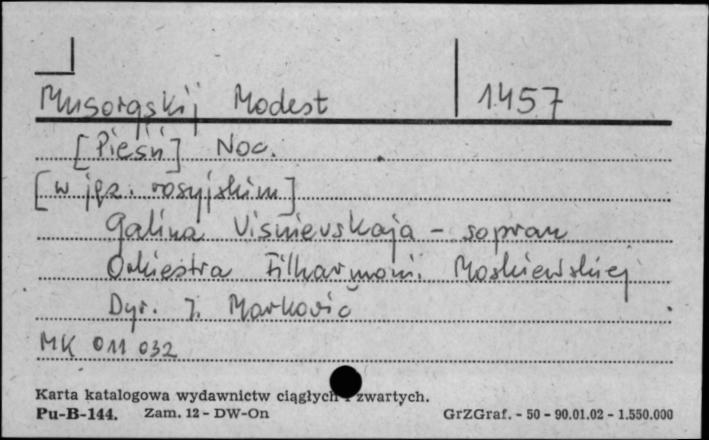 Musorgskij Modest 1457
[Pieśń] Noc.
[w jęz. rosyjskim]
Galina Višnievskaja - sopran
Orkiestra Filharmoni. Moskiewskiej
Dyr. J. Markovič
MK 011 032
Karta katalogowa wydawnictw ciągłych i zwartych.
Pu-B-144. Zam. 12 - DW-On GrZGraf. - 50 - 90.01.02 - 1.550.000